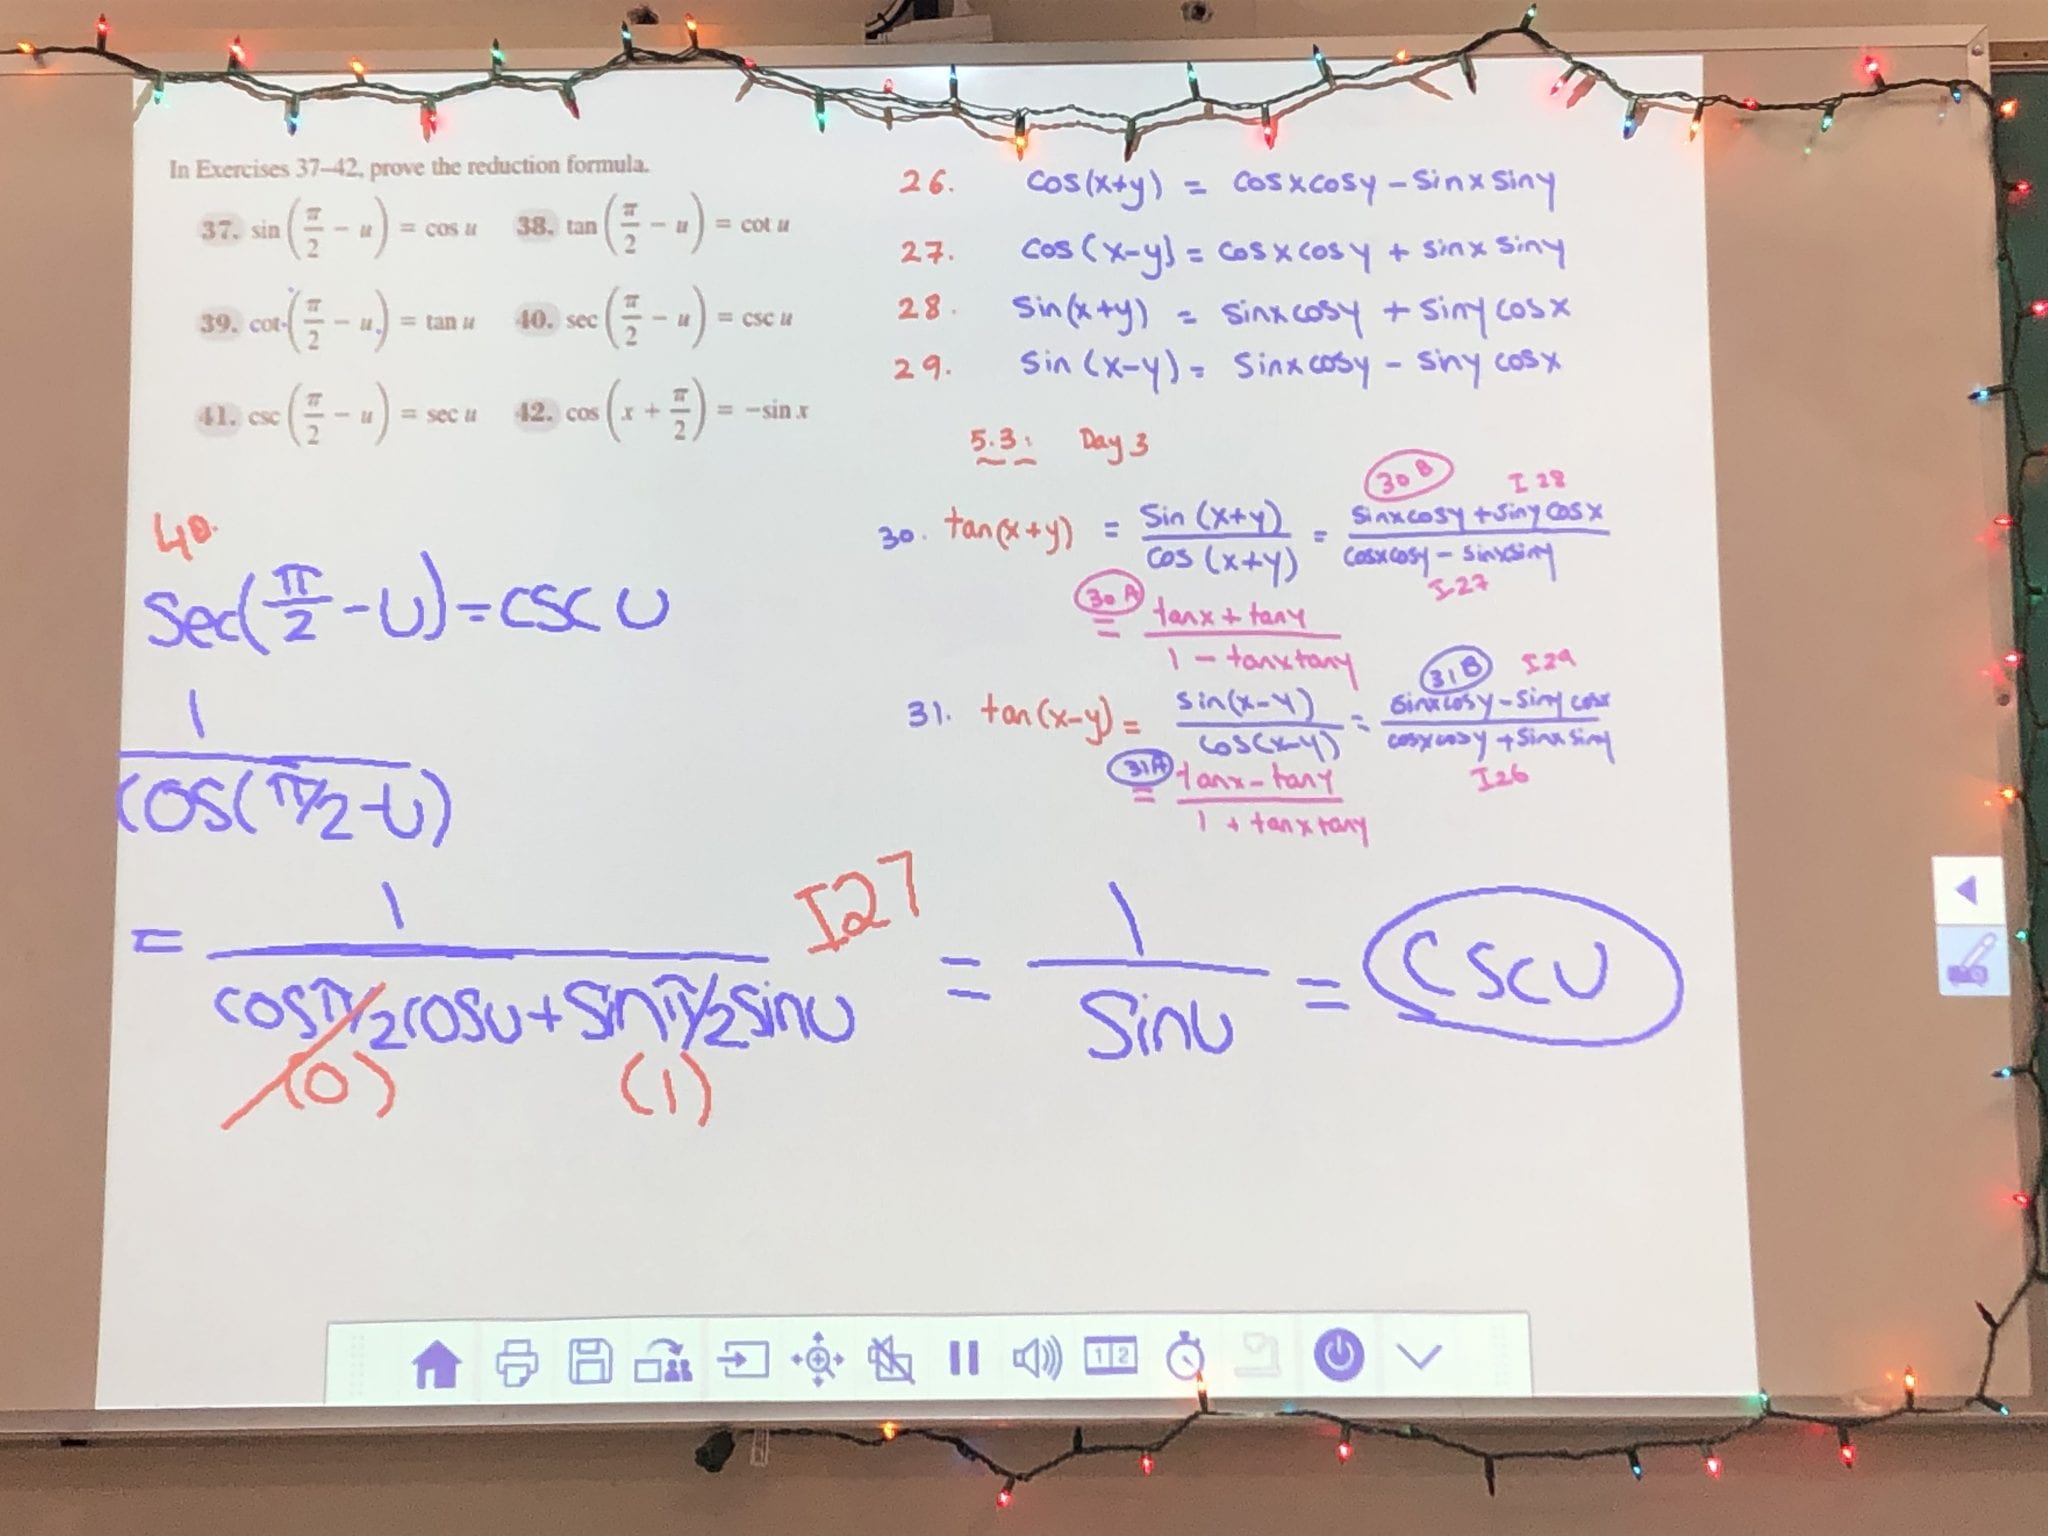 In Exercises 37–42, prove the reduction formula.
37. sin(π/2 − u) = cos u 38. tan(π/2 − u) = cot u
39. cot(π/2 − u) = tan u 40. sec(π/2 − u) = csc u
41. csc(π/2 − u) = sec u 42. cos(x + π/2) = −sin x
26. cos(x+y) = cosxcosy − sinx siny
27. cos(x−y) = cosxcosy + sinx siny
28. sin(x+y) = sinxcosy + siny cosx
29. sin(x−y) = sinxcosy − siny cosx
5.3: Day 3
30B I28
30. tan(x+y) = sin(x+y)/cos(x+y) = sinxcosy + siny cosx/cosxcosy − sinxsiny
I27
30A = tanx + tany/1 − tanxtany
31B I29
31. tan(x−y) = sin(x−y)/cos(x−y) = sinxcosy − siny cosx/cosxcosy + sinx siny
I26
31A = tanx − tany/1 + tanxtany
40.
sec(π/2 − U) = CSC U
1
cos(π/2 − U)
= 1 I27 = 1 = CSCU
cosπ/2cosu + sinπ/2sinu sinu
(0) (1)
1 2